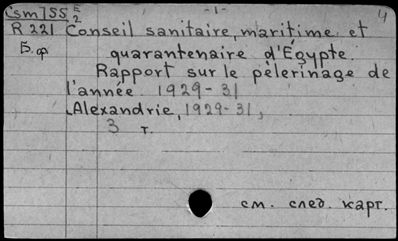 [sm]SS E/2 -1- 4
R 221 Conseil sanitaire, maritime et
Б.ф quarantenaire d'Égypte.
Rapport sur le pèlerinage de
l'année 1929-31
Alexandrie, 1929-31,
3 т.
см. след. карт.